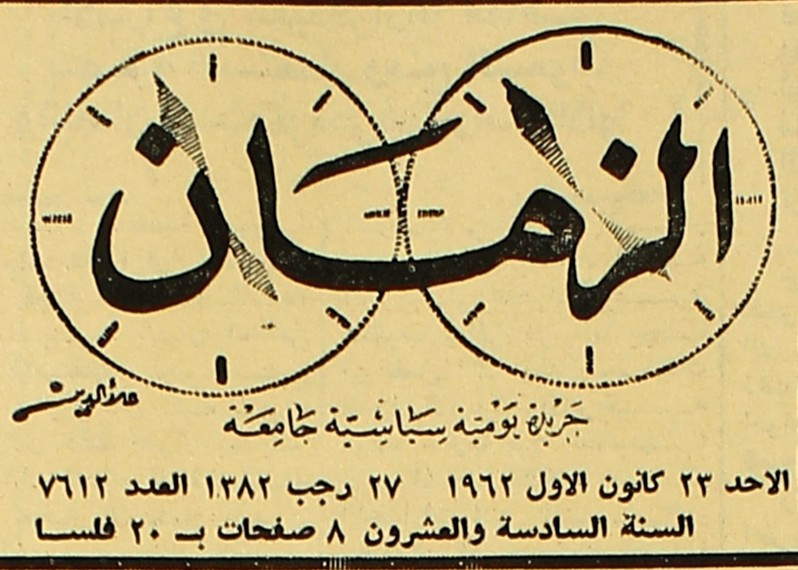 الزمان
علاء الدين
جريدة يومية سياسية جامعة
الاحد ٢٣ كانون الاول ١٩٦٢ ٢٧ رجب ١٣٨٢ العدد ٧٦١٢
السنة السادسة والعشرون ٨ صفحات بـ ٢٠ فلسا